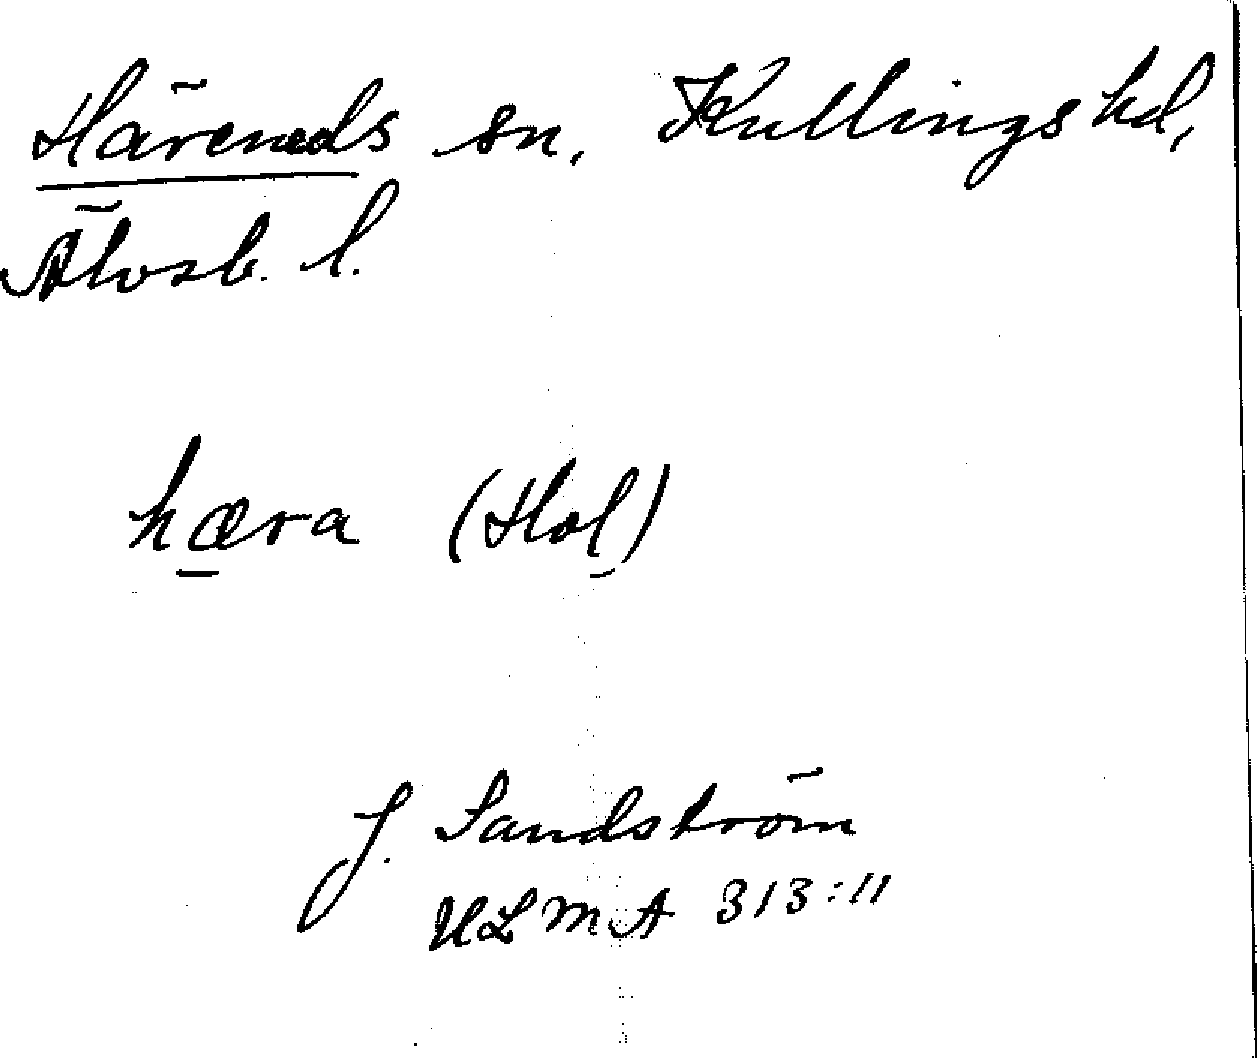 Häreneds sn. Kullings hd,
Älvsb. l.
hæra (Hol)
J. Sandström
ULMA 313:11